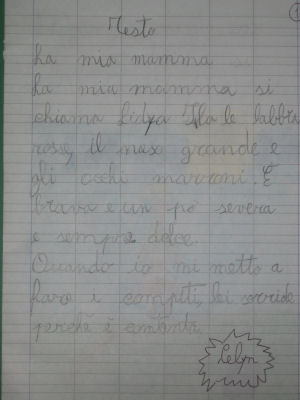 Testo
La mia mamma
La mia mamma si
chiama Lidya Ha le labbra
rosse, il naso grande e
gli occhi marroni. È
brava e un pò severa
e sempre dolce.
Quando io mi metto a
fare i compiti, lei sorride
perchè è contenta.
1